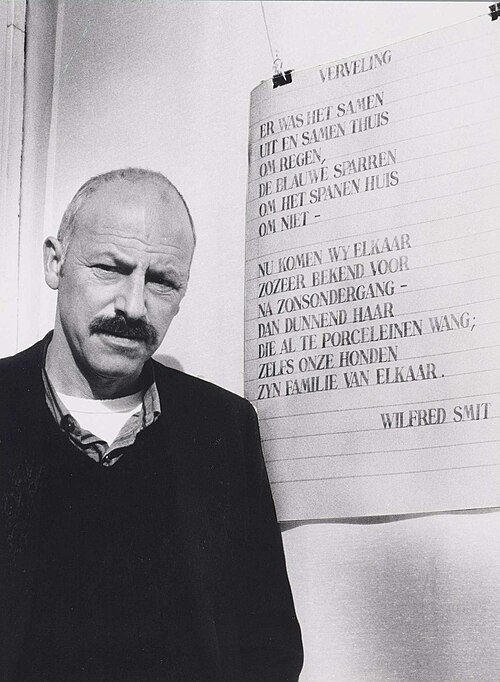 VERVELING
ER WAS HET SAMEN
UIT EN SAMEN THUIS
OM REGEN,
DE BLAUWE SPARREN
OM HET SPANEN HUIS
OM NIET –
NU KOMEN WY ELKAAR
ZOZEER BEKEND VOOR
NA ZONSONDERGANG –
DAN DUNNEND HAAR
DIE AL TE PORCELEINEN WANG;
ZELFS ONZE HONDEN
ZYN FAMILIE VAN ELKAAR.
WILFRED SMIT